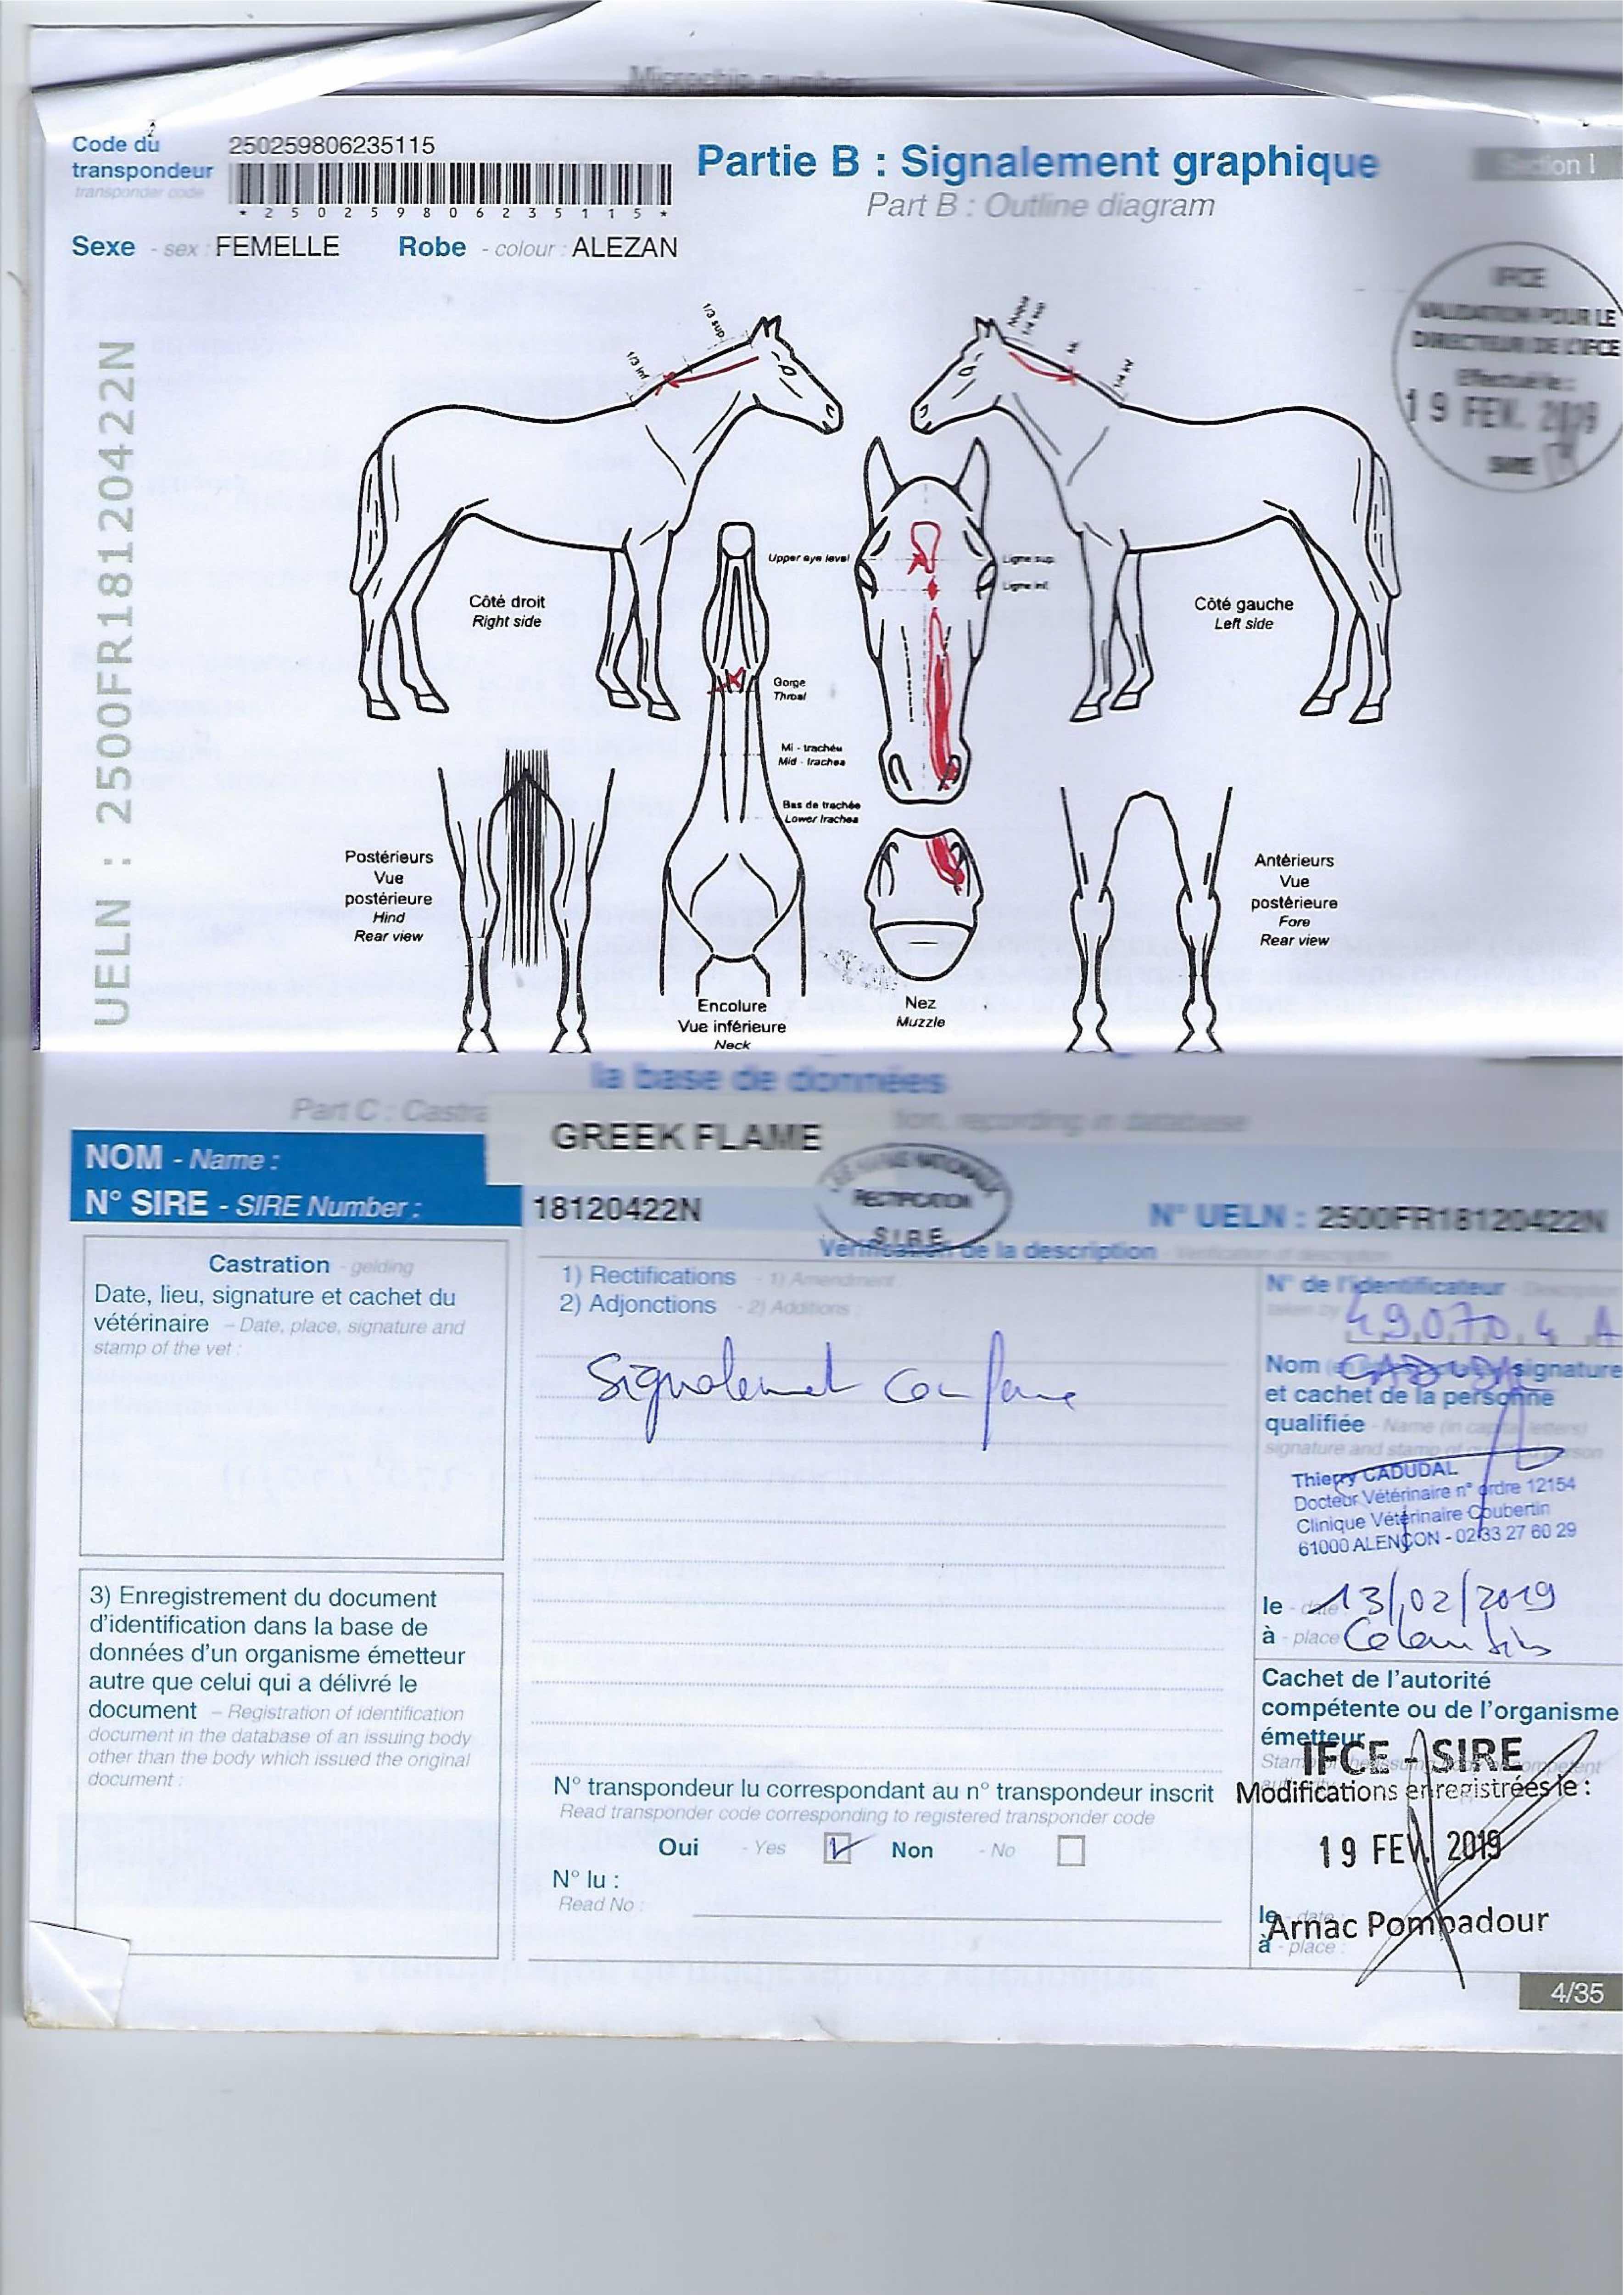 Microchip number
Code du
transpondeur
transponder code
250259806235115
* 2 5 0 2 5 9 8 0 6 2 3 5 1 1 5 *
Partie B : Signalement graphique
Part B : Outline diagram
Section I
Sexe - sex : FEMELLE
Robe - colour : ALEZAN
IFCE
VALIDATION POUR LE
DIRECTEUR DE L'IFCE
Effectué le :
19 FEV. 2019
SIRE
UELN : 2500FR18120422N
1/3 sup
1/3 inf
1/4 sup
1/4 inf
Upper eye level
Ligne sup.
Ligne inf.
Côté droit
Right side
Côté gauche
Left side
Gorge
Throat
Mi - trachée
Mid - trachea
Bas de trachée
Lower trachea
Postérieurs
Vue
postérieure
Hind
Rear view
Antérieurs
Vue
postérieure
Fore
Rear view
Encolure
Vue inférieure
Neck
Nez
Muzzle
la base de données
Part C : Castra
tion, recording in database
NOM - Name :
GREEK FLAME
N° SIRE - SIRE Number :
18120422N
N° UELN : 2500FR18120422N
RECTIFICATION
S.I.R.E.
Vérification de la description - Verification of description
Castration - gelding
Date, lieu, signature et cachet du
vétérinaire - Date, place, signature and
stamp of the vet :
1) Rectifications - 1) Amendment
2) Adjonctions - 2) Additions :
Signalement conforme
N° de l'identificateur
taken by
49.070.4 A
Nom signature
et cachet de la personne
qualifiée - Name (in capital letters)
signature and stamp of qualified person
Thierry CADUDAL
Docteur Vétérinaire n° ordre 12154
Clinique Vétérinaire Coubertin
61000 ALENÇON - 02 33 27 60 29
le - date : 13/02/2019
à - place
3) Enregistrement du document
d'identification dans la base de
données d'un organisme émetteur
autre que celui qui a délivré le
document - Registration of identification
document in the database of an issuing body
other than the body which issued the original
document :
Cachet de l'autorité
compétente ou de l'organisme
émetteur
IFCE - SIRE
Modifications enregistrées le :
19 FEV. 2019
le - date :
Arnac Pompadour
à - place :
N° transpondeur lu correspondant au n° transpondeur inscrit
Read transponder code corresponding to registered transponder code
Oui - Yes Non - No
N° lu :
Read No :
4/35